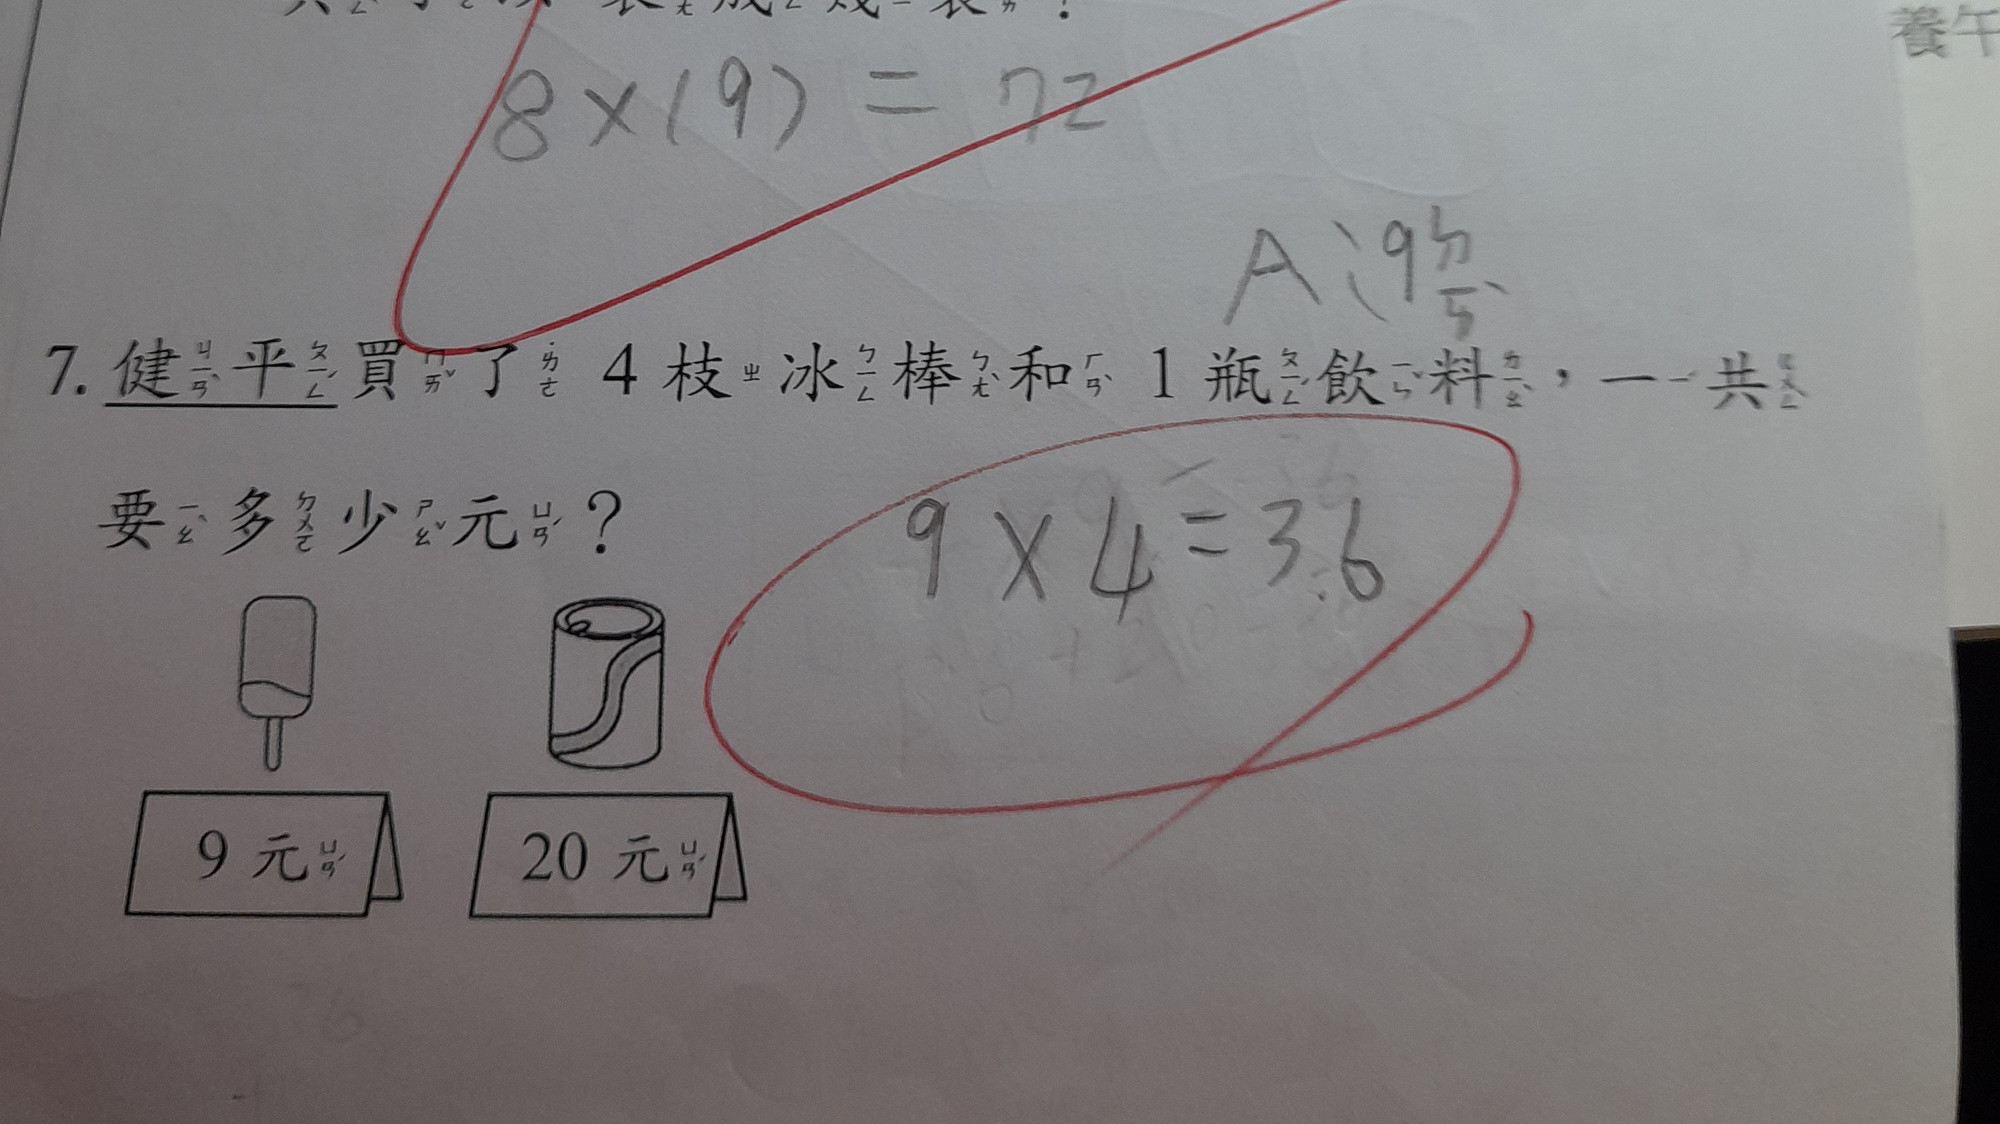 8×(9)=72
A:9ㄉㄞˋ
養午
7. 健平買了 4 枝冰棒和 1 瓶飲料，一共
要多少元？
9×4=36
9 元
20 元